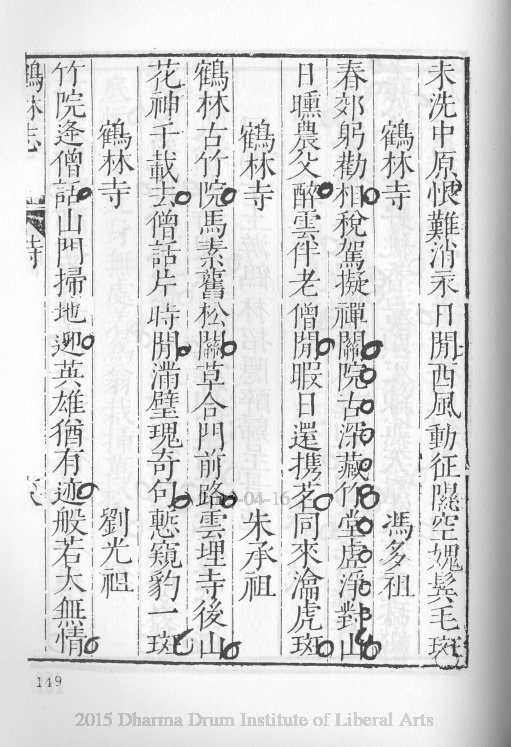 未洗中原恨難消永日閒西風動征隴空媿鬂毛斑
鶴林寺 馮多祖
春郊躬勸相稅駕擬禪關院古深藏竹堂虛淨對山
日曛農父醉雲伴老僧閒暇日還携茗同來瀹虎斑
鶴林寺 朱承祖
鶴林古竹院馬素舊松關草合門前路雲埋寺後山
花神千載去僧話片時閒滿壁瑰奇句慙窺豹一斑
鶴林寺 劉光祖
竹院逢僧話山門掃地迎英雄猶有迹般若太無情
鶴林志 詩
04-16
149
2015 Dharma Drum Institute of Liberal Arts